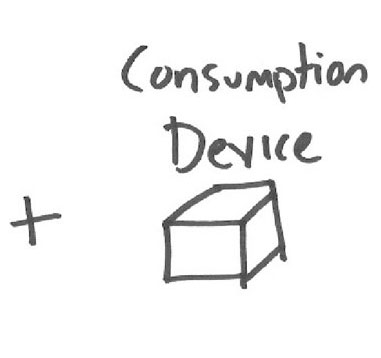 Consumption
Device
+